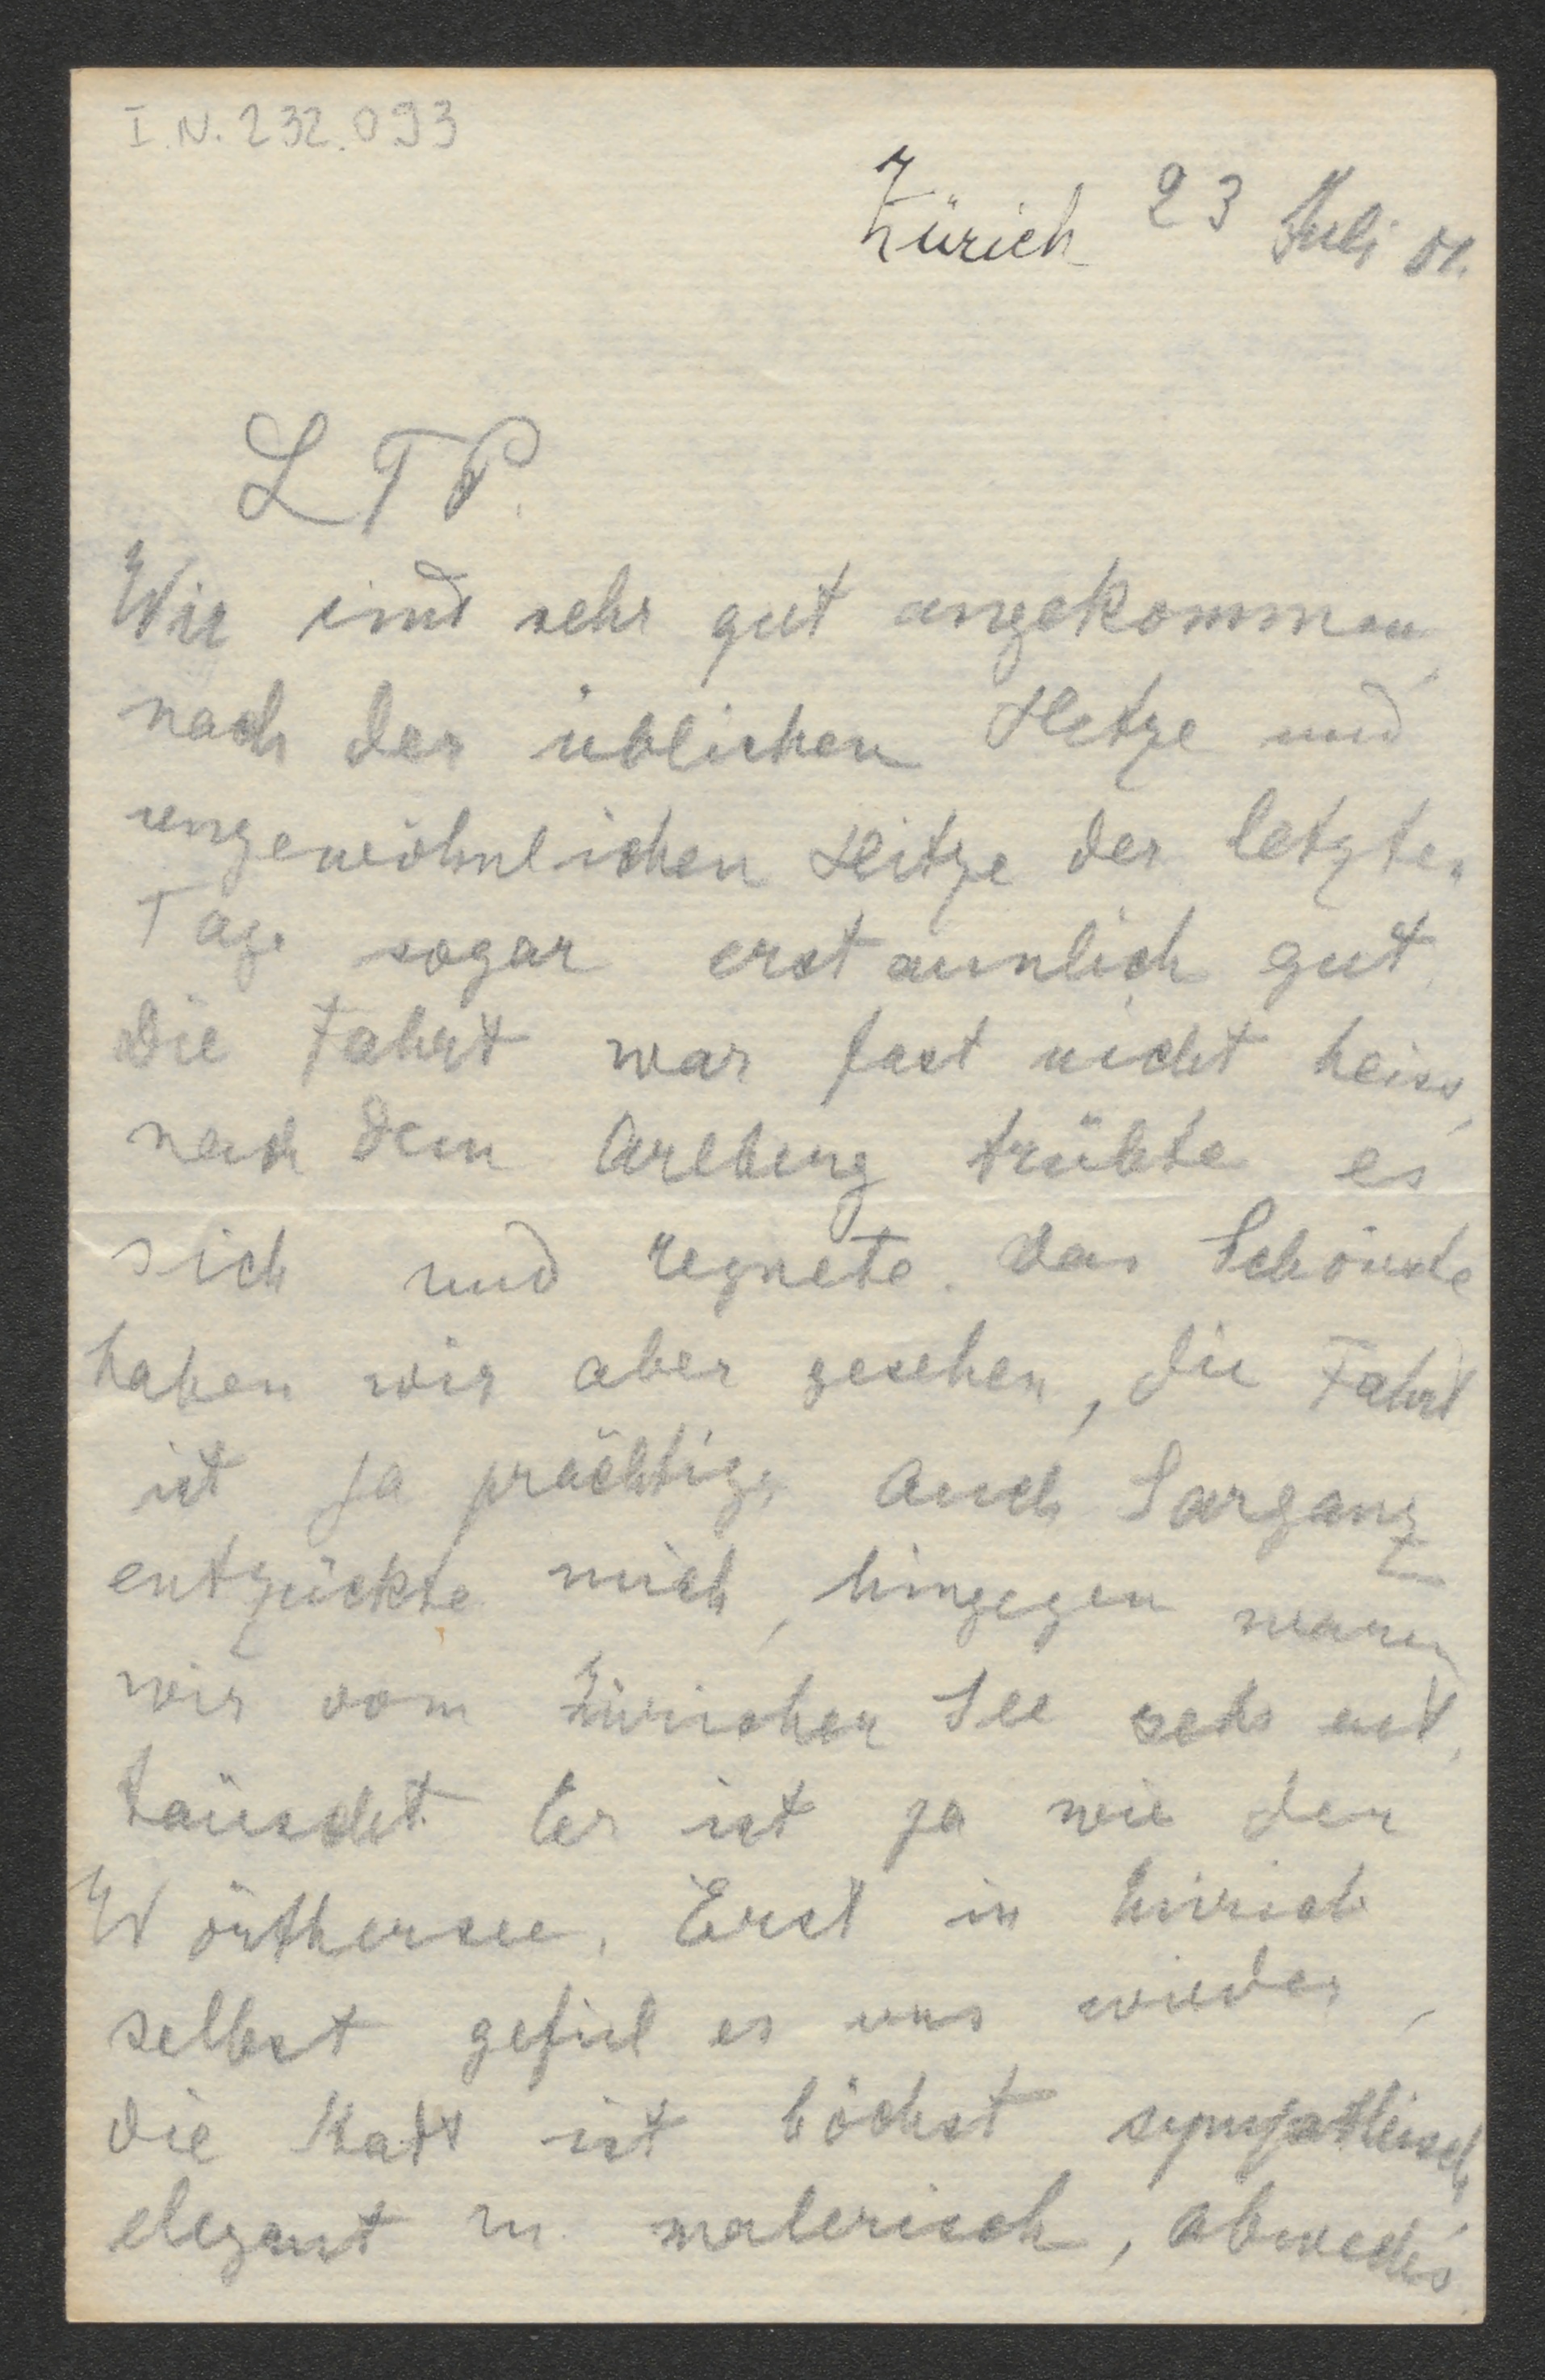 I.N. 232.093
Zürich 23 Juli 01.
L T P.
Wir sind sehr gut angekommen,
nach der üblichen Hetze und
ungewöhnlichen Hitze der letzten
Tage sogar erstaunlich gut.
Die Fahrt war fast nicht heiss,
nach dem Arlberg trübte es
sich und regnete. Das Schönste
haben wir aber gesehen, die Fahrt
ist ja prächtig. Auch Sarganz
entzückte mich, hingegen waren
wir vom Züricher See sehr ent,
täuscht. Er ist ja wie der
Wörthersee. Erst in Zürich
selbst gefiel es uns wieder,
die Stadt ist höchst sympathisch,
elegant u. malerisch, abwechs